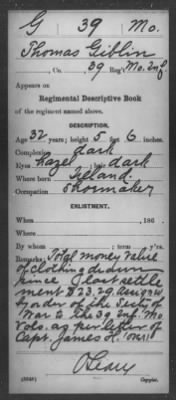 G 39 Mo.
Thomas Giblin
, Co. , 39 Reg't Mo. Inf.
Appears on
Regimental Descriptive Book
of the regiment named above.
DESCRIPTION.
Age 32 years; height 5 feet 6 inches.
Complexion dark
Eyes hazel ; hair dark
Where born Ireland.
Occupation Shoemaker
ENLISTMENT.
When , 186 .
Where
By whom ; term y'rs.
Remarks: Total money value
of clothing drawn
since last settle
ment $23.29. Assigned
by order of the Secty of
War to the 39 Inf. Mo
Vols. as per letter of
Capt. James R.
O'Leary
Copyist.